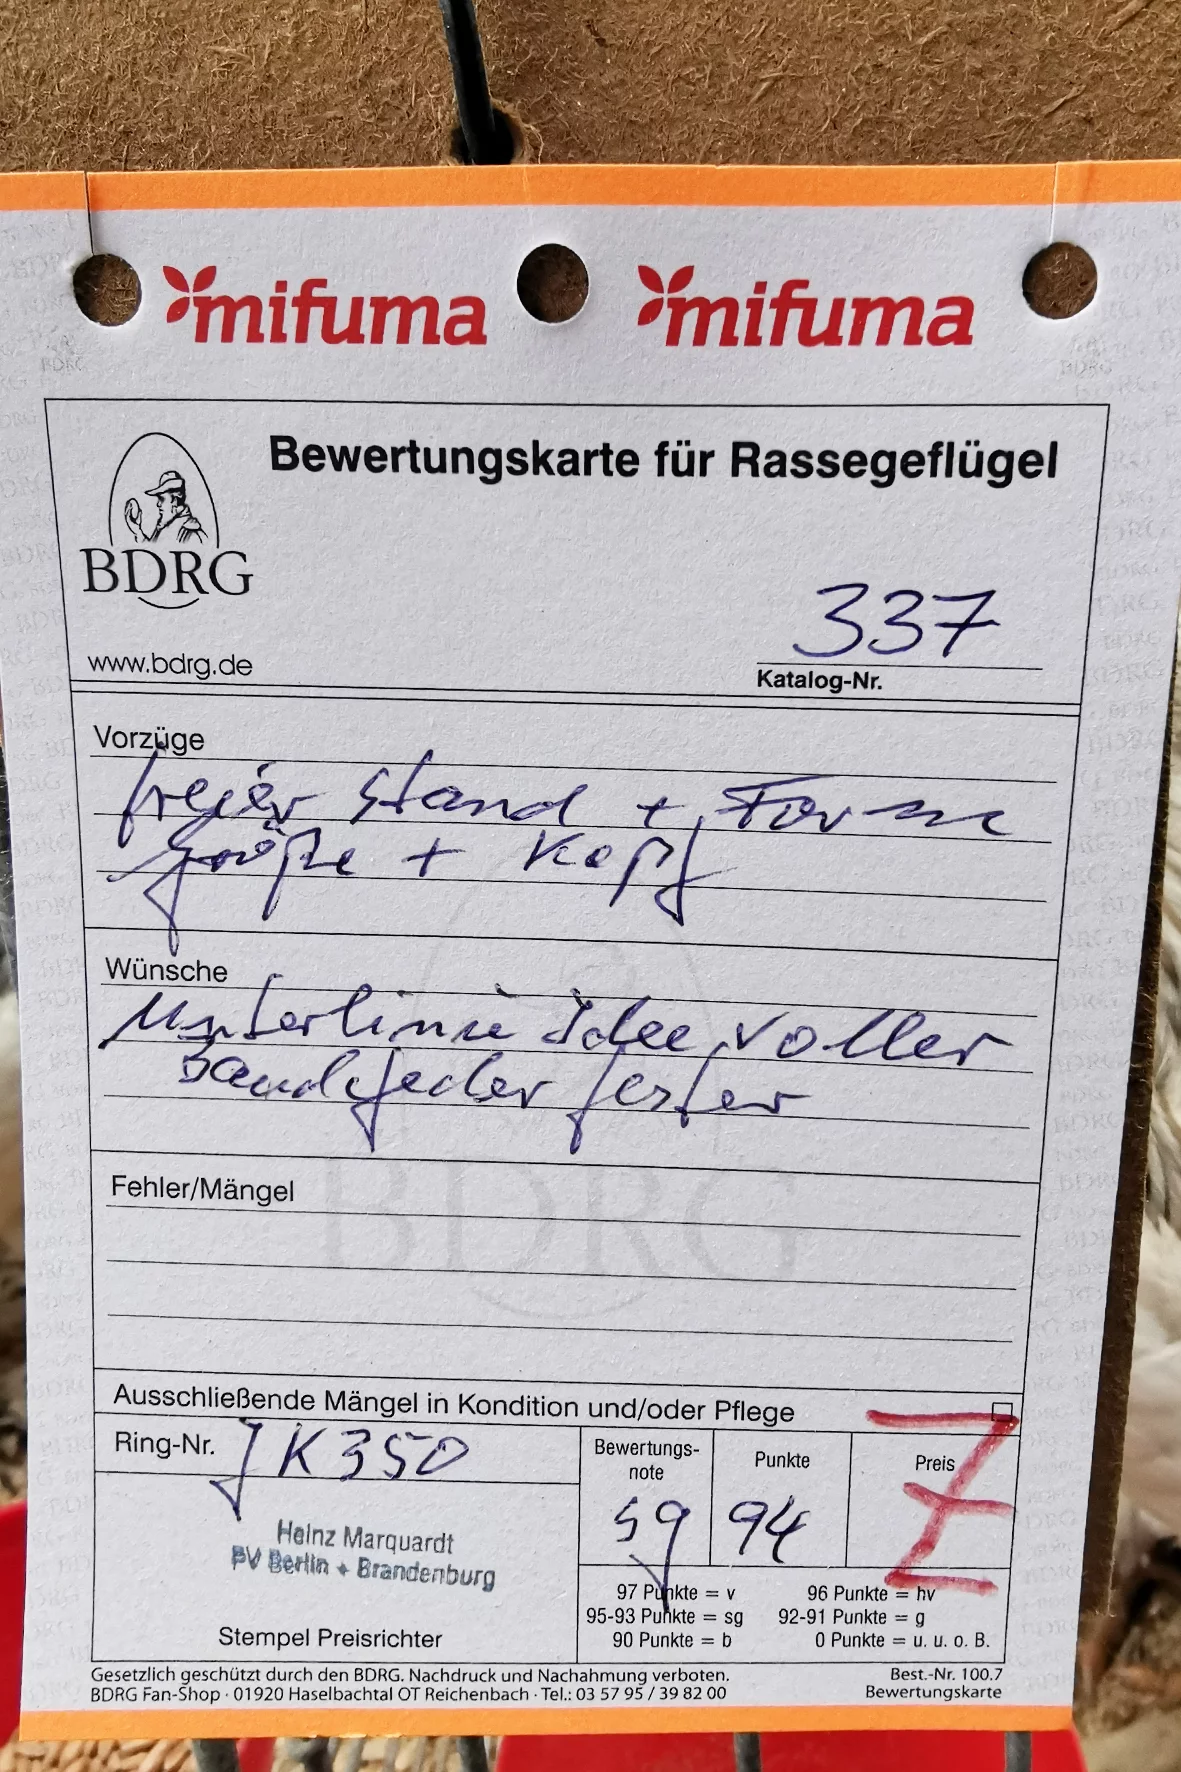 mifuma mifuma
Bewertungskarte für Rassegeflügel
BDRG
337
www.bdrg.de
Katalog-Nr.
Vorzüge
freier Stand + Form
Größe + Kopf
Wünsche
Unterlinie Idee voller
Bandfeder fester
BDRG
Fehler/Mängel
Ausschließende Mängel in Kondition und/oder Pflege
Ring-Nr. JK 350
Bewertungs-
note
Punkte
Preis
sg
94
Z
Heinz Marquardt
PV Berlin + Brandenburg
Stempel Preisrichter
97 Punkte = v 96 Punkte = hv
95-93 Punkte = sg 92-91 Punkte = g
90 Punkte = b 0 Punkte = u. u. o. B.
Gesetzlich geschützt durch den BDRG. Nachdruck und Nachahmung verboten.
BDRG Fan-Shop · 01920 Haselbachtal OT Reichenbach · Tel.: 03 57 95 / 39 82 00
Best.-Nr. 100.7
Bewertungskarte